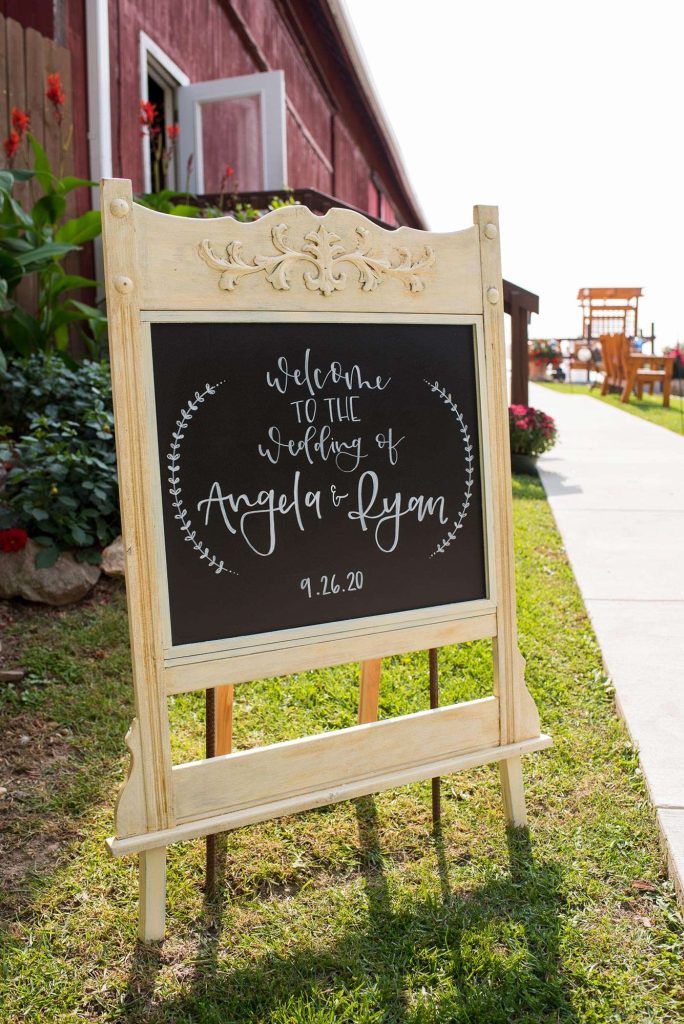 welcome
TO THE
wedding of
Angela & Ryan
9.26.20